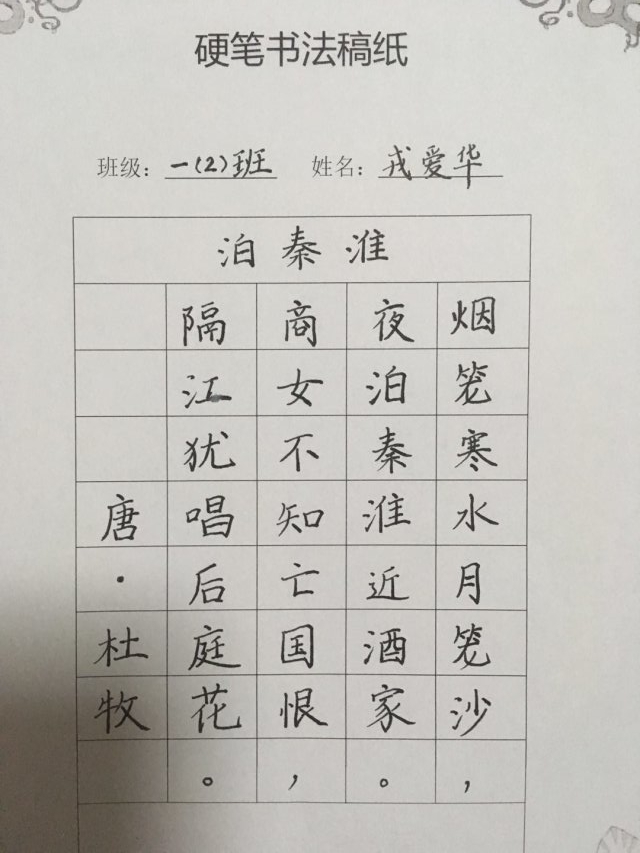 硬笔书法稿纸
班级：一(2)班 姓名：戎爱华
泊秦淮
烟笼寒水月笼沙，
夜泊秦淮近酒家。
商女不知亡国恨，
隔江犹唱后庭花。
唐·杜牧